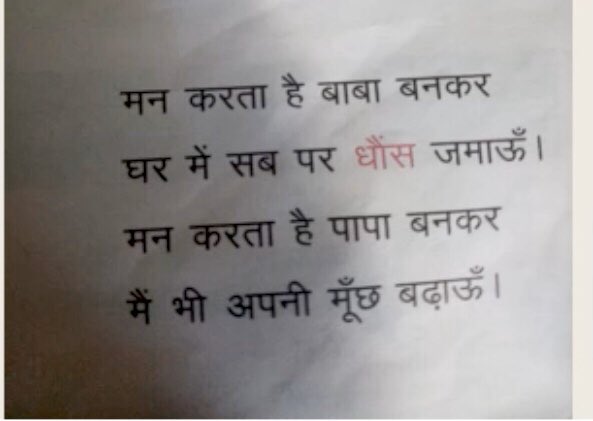 मन करता है बाबा बनकर
घर में सब पर धौंस जमाऊँ।
मन करता है पापा बनकर
मैं भी अपनी मूँछ बढ़ाऊँ।